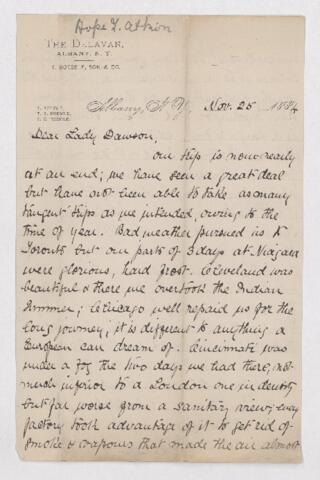 Hope T. Atkinson
THE DELAVAN,
ALBANY, N. Y.
& CO.
Albany, N. Y., Nov. 25 1884
Dear Lady Dawson,
Our trip is now nearly
at an end; we have seen a great deal
but have not been able to take as many
tangent trips as we intended, owing to the
time of year. Bad weather pursued us to
Toronto but our parts of 3 days at Niagara
were glorious, hard frost. Cleveland was
beautiful & there we overtook the Indian
Summer; Chicago well repaid us for the
long journey, it is different to anything a
European can dream of. Cincinnati was
under a fog the two days we had there, not
much inferior to a London one in density
but far worse from a sanitary view; every
factory took advantage of it to get rid of
smoke & vapours that made the air almost